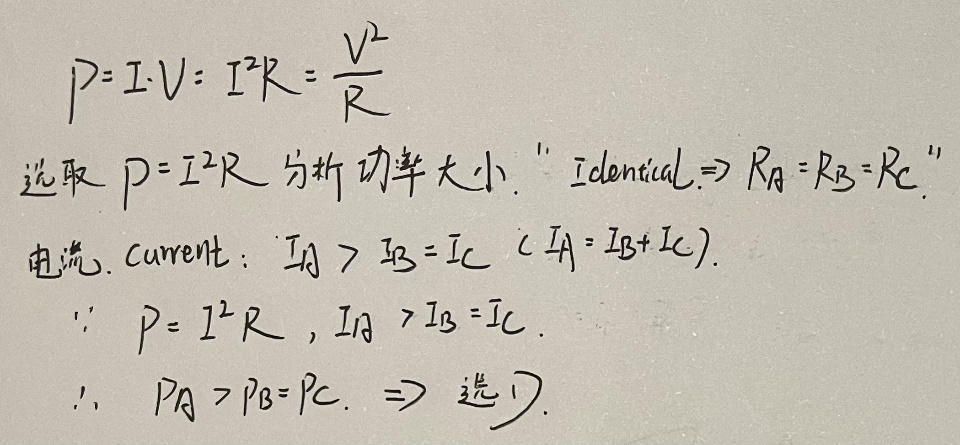 P=I·V=I²R=V²/R
选取 P=I²R 分析功率大小. "Identical.⇒ R_A=R_B=R_C."
电流. Current: I_A > I_B = I_C (I_A = I_B+I_C).
∵ P=I²R, I_A > I_B = I_C.
∴ P_A > P_B = P_C. ⇒ 选D.